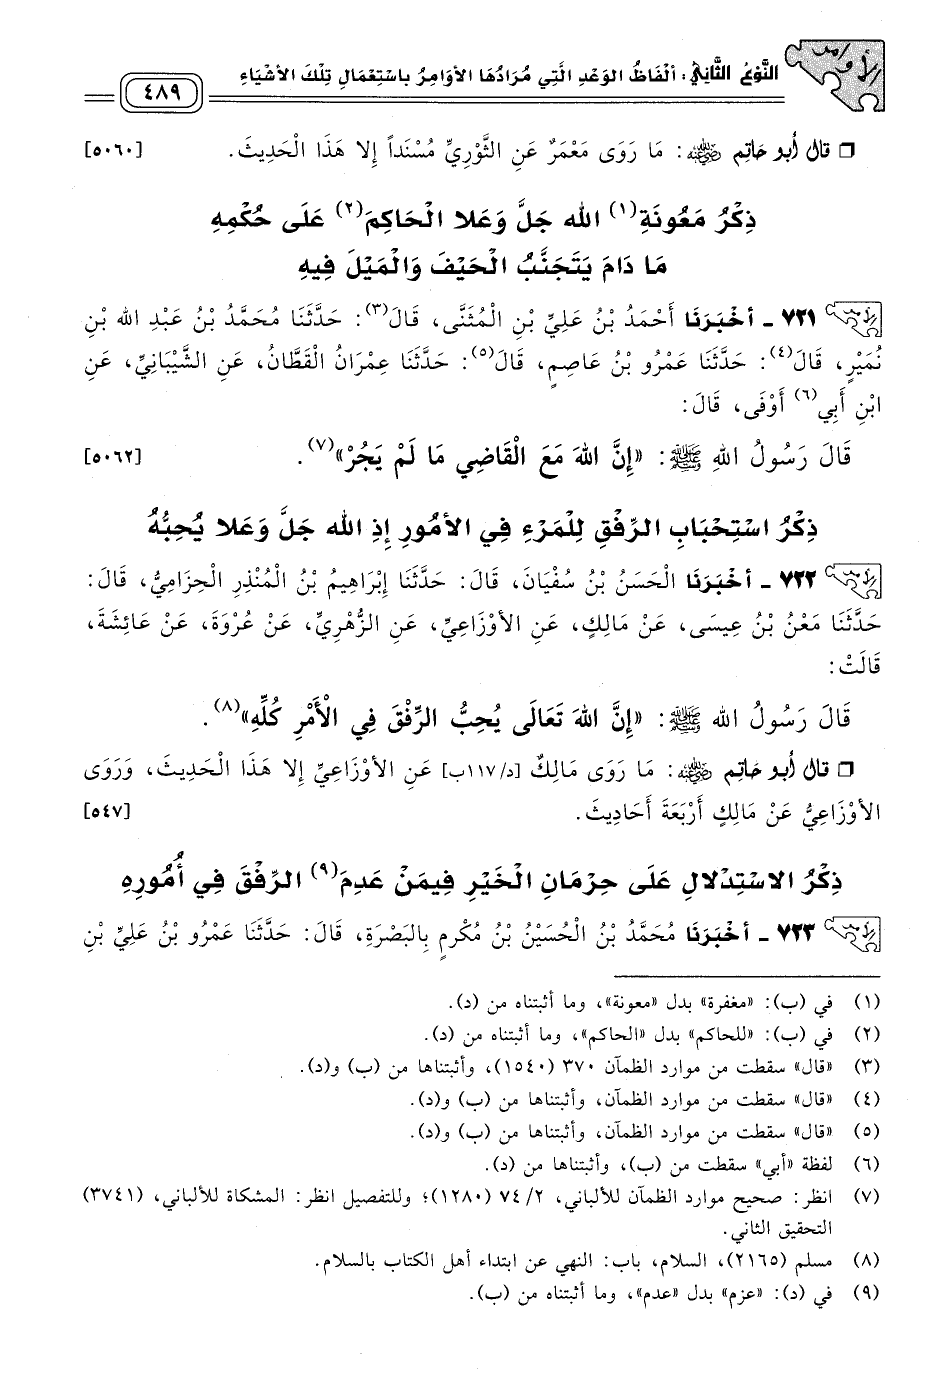 الأوامر
النَّوْعُ الثَّانِي: أَلْفَاظُ الوَعْدِ الَّتِي مُرَادُهَا الأَوَامِرُ بِاسْتِعْمَالِ تِلْكَ الأَشْيَاءِ
٤٨٩
❒ قال أبو حَاتِم رضي الله عنه: مَا رَوَى مَعْمَرٌ عَنِ الثَّوْرِيِّ مُسْنَداً إِلا هَذَا الْحَدِيثَ. [٥٠٦٠]
ذِكْرُ مَعُونَةِ(١) الله جَلَّ وَعَلا الْحَاكِمَ(٢) عَلَى حُكْمِهِ
مَا دَامَ يَتَجَنَّبُ الْحَيْفَ وَالْمَيْلَ فِيهِ
٧٢١ - أَخْبَرَنَا أَحْمَدُ بْنُ عَلِيِّ بْنِ الْمُثَنَّى، قَالَ(٣): حَدَّثَنَا مُحَمَّدُ بْنُ عَبْدِ الله بْنِ
نُمَيْرٍ، قَالَ(٤): حَدَّثَنَا عَمْرُو بْنُ عَاصِمٍ، قَالَ(٥): حَدَّثَنَا عِمْرَانُ الْقَطَّانُ، عَنِ الشَّيْبَانِيِّ، عَنِ
ابْنِ أَبِي(٦) أَوْفَى، قَالَ:
قَالَ رَسُولُ اللهِ ﷺ: «إِنَّ اللهَ مَعَ الْقَاضِي مَا لَمْ يَجُرْ»(٧). [٥٠٦٢]
ذِكْرُ اسْتِحْبَابِ الرِّفْقِ لِلْمَرْءِ فِي الأُمُورِ إِذِ الله جَلَّ وَعَلا يُحِبُّهُ
٧٢٢ - أَخْبَرَنَا الْحَسَنُ بْنُ سُفْيَانَ، قَالَ: حَدَّثَنَا إِبْرَاهِيمُ بْنُ الْمُنْذِرِ الْحِزَامِيُّ، قَالَ:
حَدَّثَنَا مَعْنُ بْنُ عِيسَى، عَنْ مَالِكٍ، عَنِ الأَوْزَاعِيِّ، عَنِ الزُّهْرِيِّ، عَنْ عُرْوَةَ، عَنْ عَائِشَةَ،
قَالَتْ:
قَالَ رَسُولُ الله ﷺ: «إِنَّ اللهَ تَعَالَى يُحِبُّ الرِّفْقَ فِي الْأَمْرِ كُلِّهِ»(٨).
❒ قال أبو حَاتِم رضي الله عنه: مَا رَوَى مَالِكٌ [د/١١٧ب] عَنِ الأَوْزَاعِيِّ إِلا هَذَا الْحَدِيثَ، وَرَوَى
الأَوْزَاعِيُّ عَنْ مَالِكٍ أَرْبَعَةَ أَحَادِيثَ. [٥٤٧]
ذِكْرُ الاسْتِدْلالِ عَلَى حِرْمَانِ الْخَيْرِ فِيمَنْ عَدِمَ(٩) الرِّفْقَ فِي أُمُورِهِ
٧٢٣ - أَخْبَرَنَا مُحَمَّدُ بْنُ الْحُسَيْنُ بْنُ مُكْرمٍ بِالبَصْرَةِ، قَالَ: حَدَّثَنَا عَمْرُو بْنُ عَلِيِّ بْنِ
(١) في (ب): «مغفرة» بدل «معونة»، وما أثبتناه من (د).
(٢) في (ب): «للحاكم» بدل «الحاكم»، وما أثبتناه من (د).
(٣) «قال» سقطت من موارد الظمآن ٣٧٠ (١٥٤٠)، وأثبتناها من (ب) و(د).
(٤) «قال» سقطت من موارد الظمآن، وأثبتناها من (ب) و(د).
(٥) «قال» سقطت من موارد الظمآن، وأثبتناها من (ب) و(د).
(٦) لفظة «أبي» سقطت من (ب)، وأثبتناها من (د).
(٧) انظر: صحيح موارد الظمآن للألباني، ٢/ ٧٤ (١٢٨٠)؛ وللتفصيل انظر: المشكاة للألباني، (٣٧٤١)
التحقيق الثاني.
(٨) مسلم (٢١٦٥)، السلام، باب: النهي عن ابتداء أهل الكتاب بالسلام.
(٩) في (د): «عزم» بدل «عدم»، وما أثبتناه من (ب).